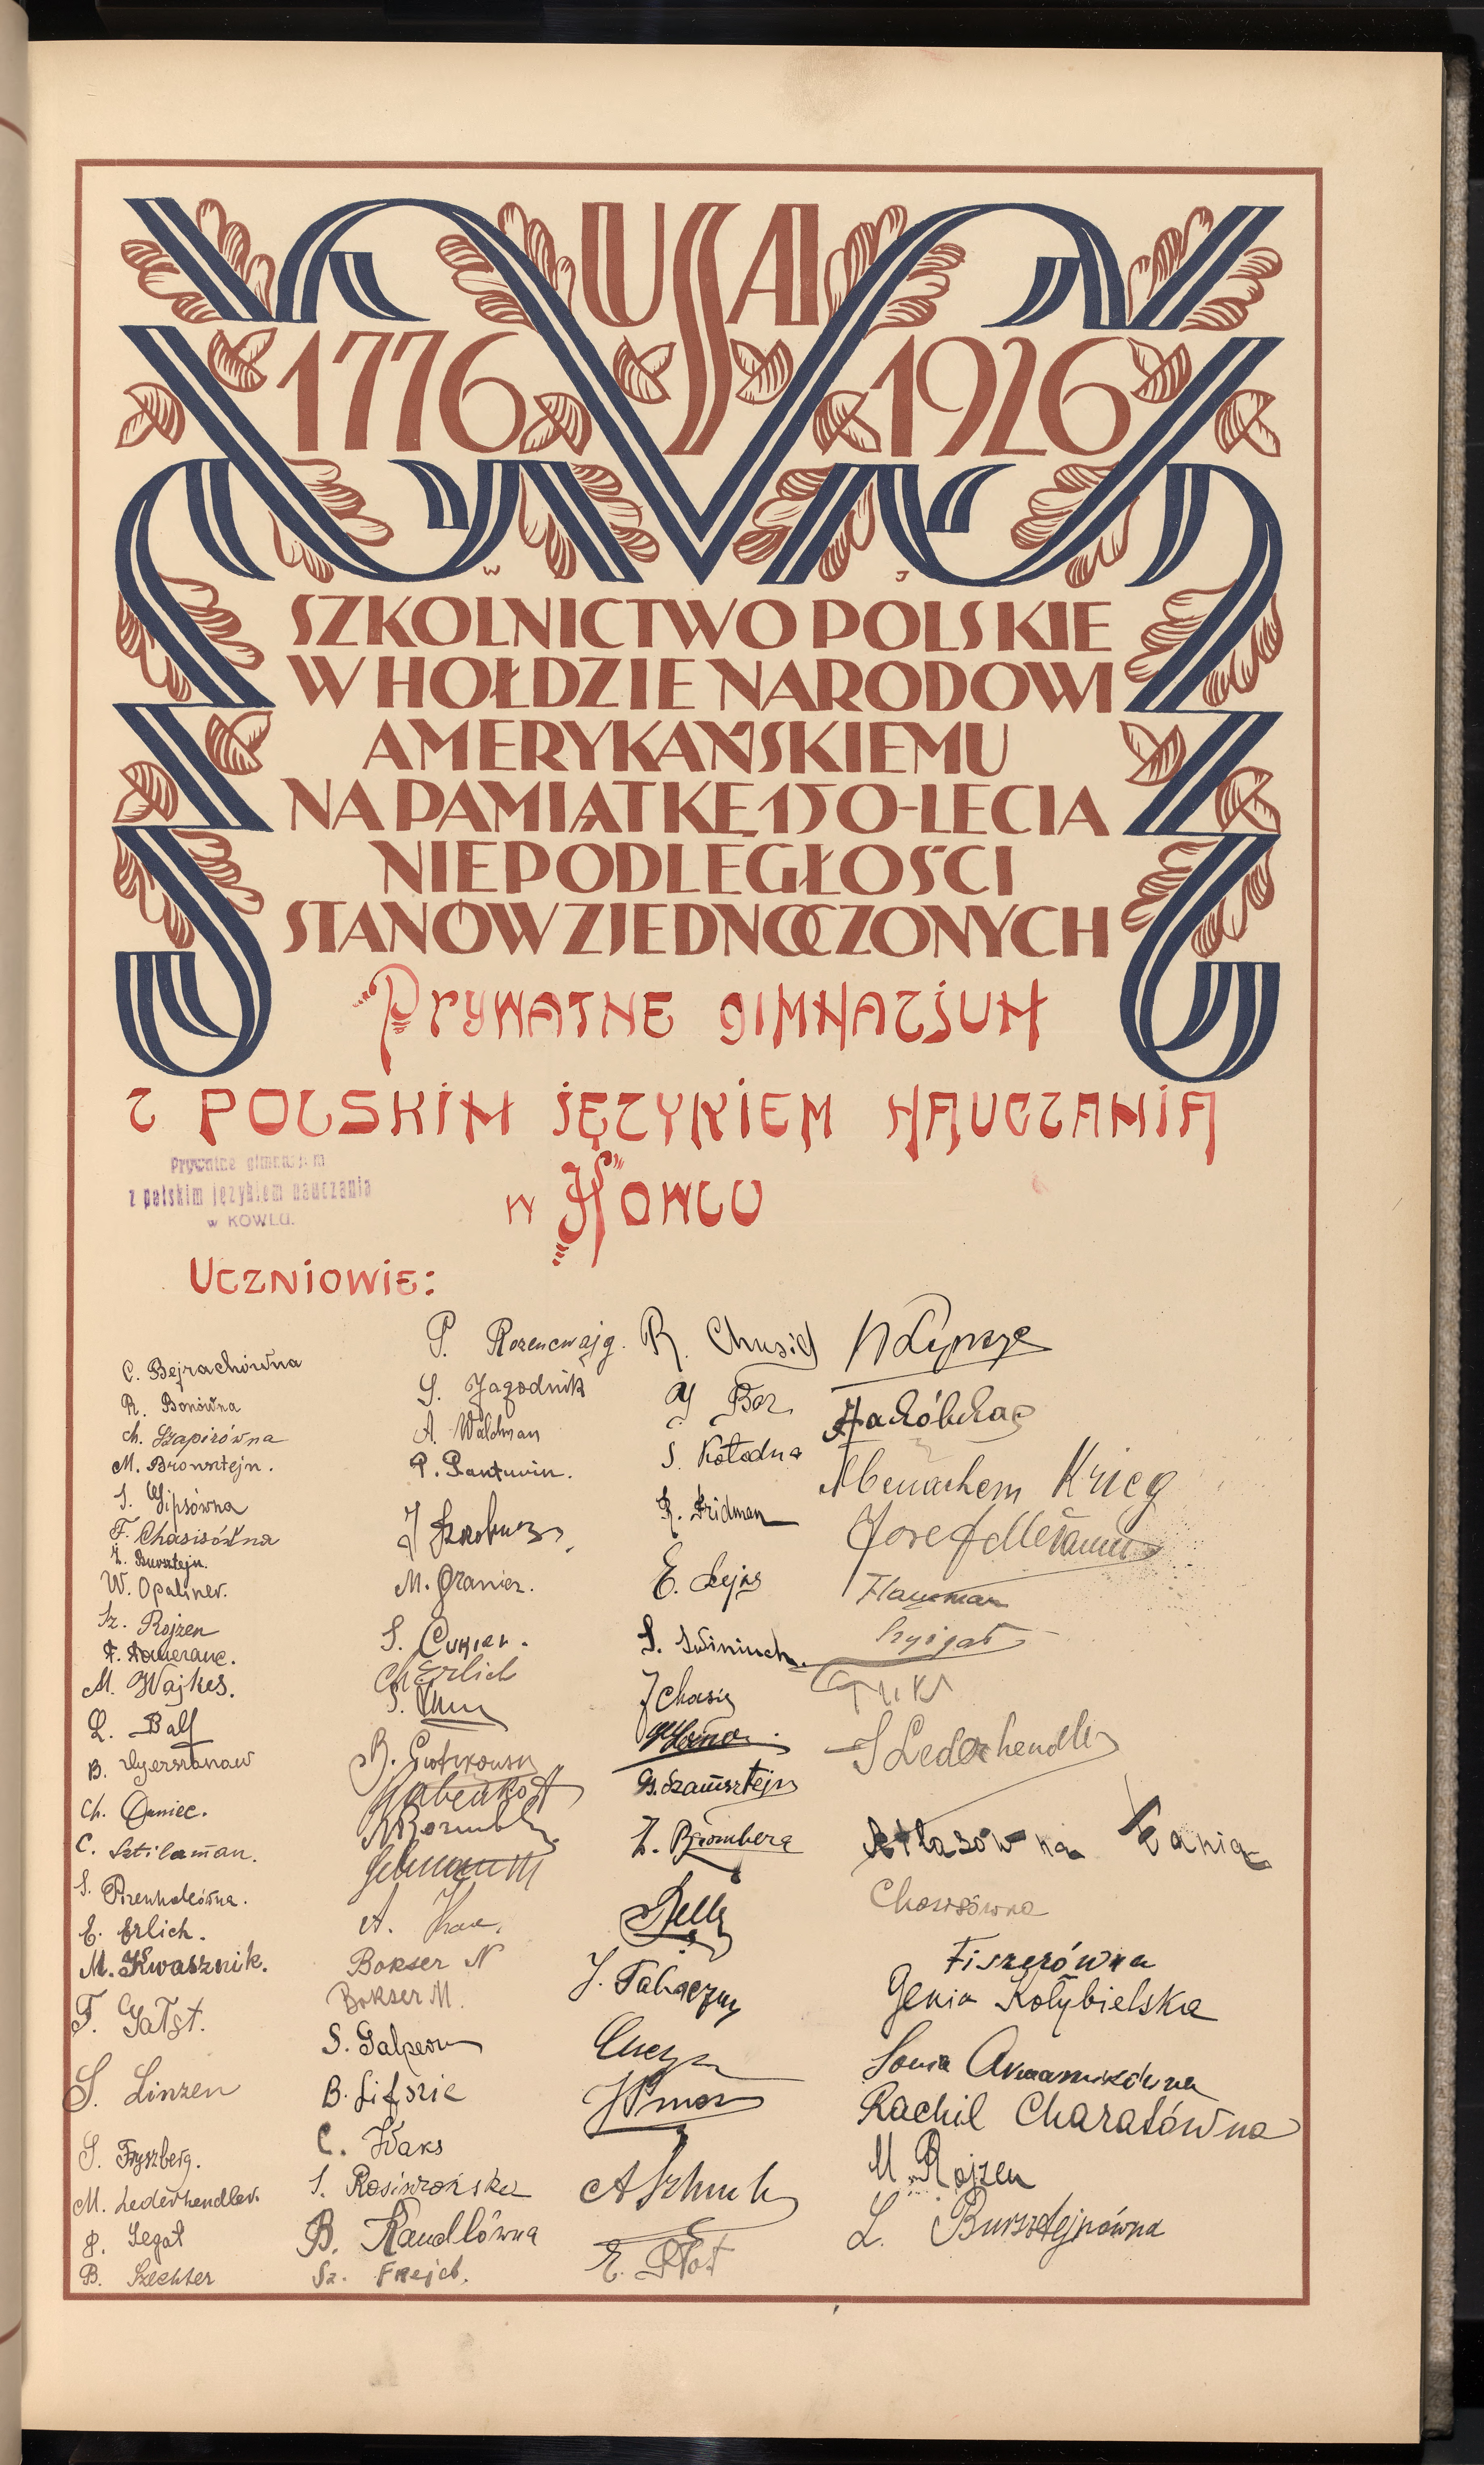 USA
1776 1926
W J
SZKOLNICTWO POLSKIE
W HOŁDZIE NARODOWI
AMERYKAŃSKIEMU
NA PAMIĄTKĘ 150-LECIA
NIEPODLEGŁOŚCI
STANÓW ZJEDNOCZONYCH
Prywatne gimnazjum
z polskim językiem nauczania
w Kowlu
Prywatne gimnazjum
z polskim językiem nauczania
w KOWLU.
Uczniowie:
C. Bejrachówna
R. Bonówna
Ch. Szapirówna
M. Bronsztejn.
S. Gipsówna
F. Chasisówna
Bursztejn.
W. Opaliner.
Sz. Rojzen
F. Pomeranc.
M. Wajkes.
L. Balf
B. Gerszonaw
Ch. Daniec.
C. Sztilerman.
S. Pizenholcówna.
E. Erlich.
M. Kwasznik.
F. Gałgt.
S. Linzen
S. Fryszberg.
M. Lederhendler.
Segał
B. Szechter
P. Rozencwajg.
S. Jagodnik
A. Waldman
P. Pantuwin.
M. Granicz.
S. Cukier.
Ch Erlich
S.
B. Piotrkowski
A.
Bokser N
Bokser M.
S. Galpern
B. Lifszic
C. Waks
S. Rosiszońska
B. Kandlówna
Sz. Frejdt.
R. Chusid
Bar
S. Kołodna
R. Fridman
E. Lejks
S. Swiniuch.
J Chasis
B. Szamsztejn
Z. Bromberg
J. Tabaczny
A Szmuk
E. Płot
Menachem Krieg
Josef Melamed
Hausman
Szyigał
S Lederhendler
Atłasówna Fania
Chassówna
Fiszerówna
Genia Kołybielska
Sonia
Rachil Charatówna
M. Rojzen
L. Bursztejnówna